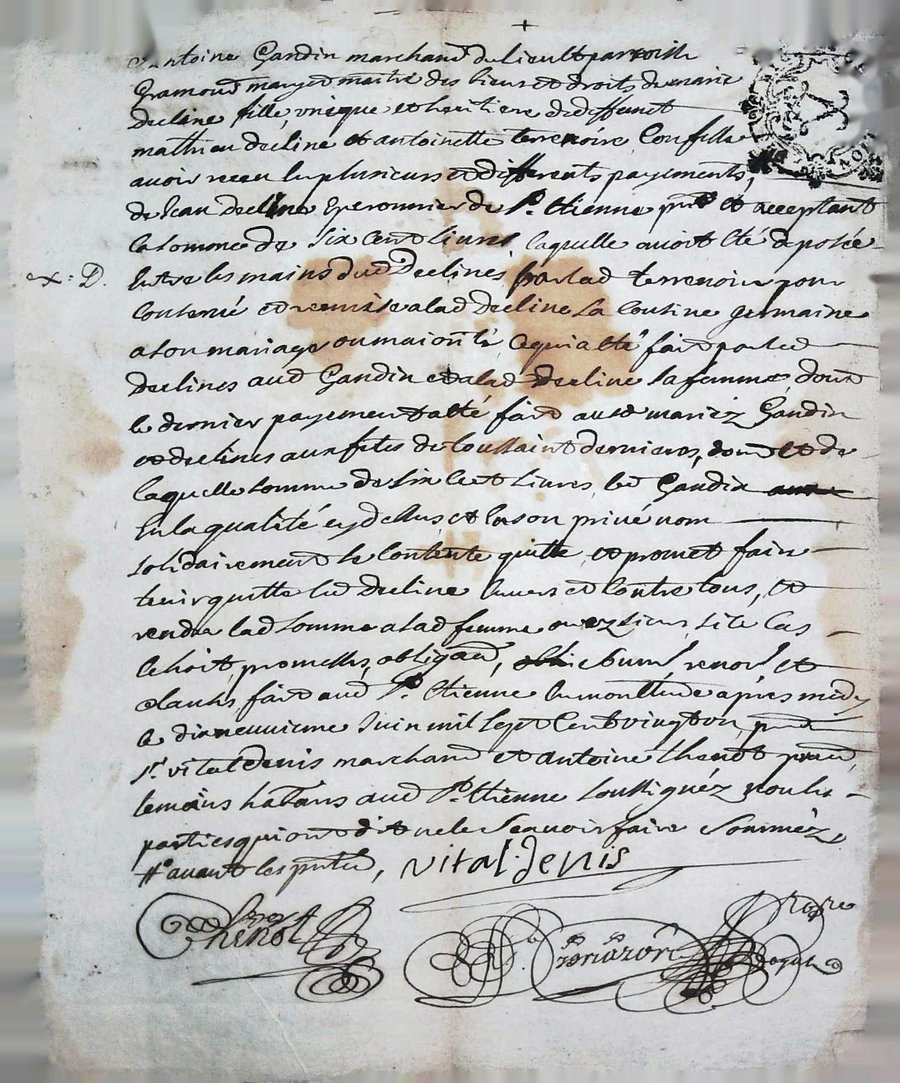 Antoine Gandin marchand du lieu et parroisse
Gramond mary et maitre des biens et droits de marie
decline fille unique et heritiere de deffunct
mathieu decline et antoinette terrenoire Confesse
avoir receu en plusieurs et differents payements,
de Jean decline eperonnier de St. Etienne pnt et acceptant
la somme de six cent livres laquelle avoit eté deposée
x: D.
Entre les mains dud declines par lad terrenoire pour
et remise a lad decline sa Cousine germaine
a son mariage ou maiorité, Ce qui a eté fait par led
declines aud Gandin et a lad decline sa femme dont
le dernier payement a eté fait ausd mariéz Gandin
et declines aux fetes de toussaint dernieres, dont et de
laquelle somme de six Cent livres led Gandin
En la qualité cy dessus et En son privé nom
solidairement se Contente quitte et promet faire
tenir quitte led decline Envers et Contre tous, et
rendre lad somme a lad femme ou ez siens si le Cas
Echoit, promesses, obligaōn, renoōn et
Clauses fait aud St. Etienne En une Etude après midy
le dixneuvieme Juin mil sept Cent vingt pnt
sr. vital denis marchand et antoine thenot
temoins habitans aud St. Etienne soussignéz non les
parties qui ont dit ne le scavoir faire Sommez
avant les pntes,
vital. denis
Thenot